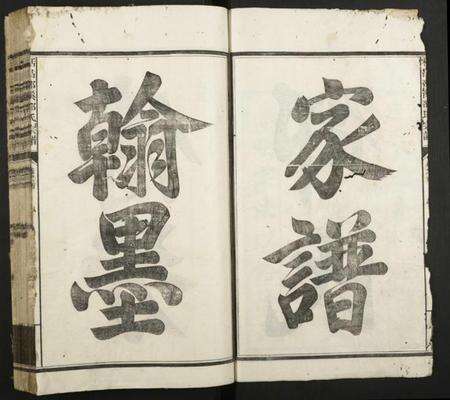 家譜
翰墨